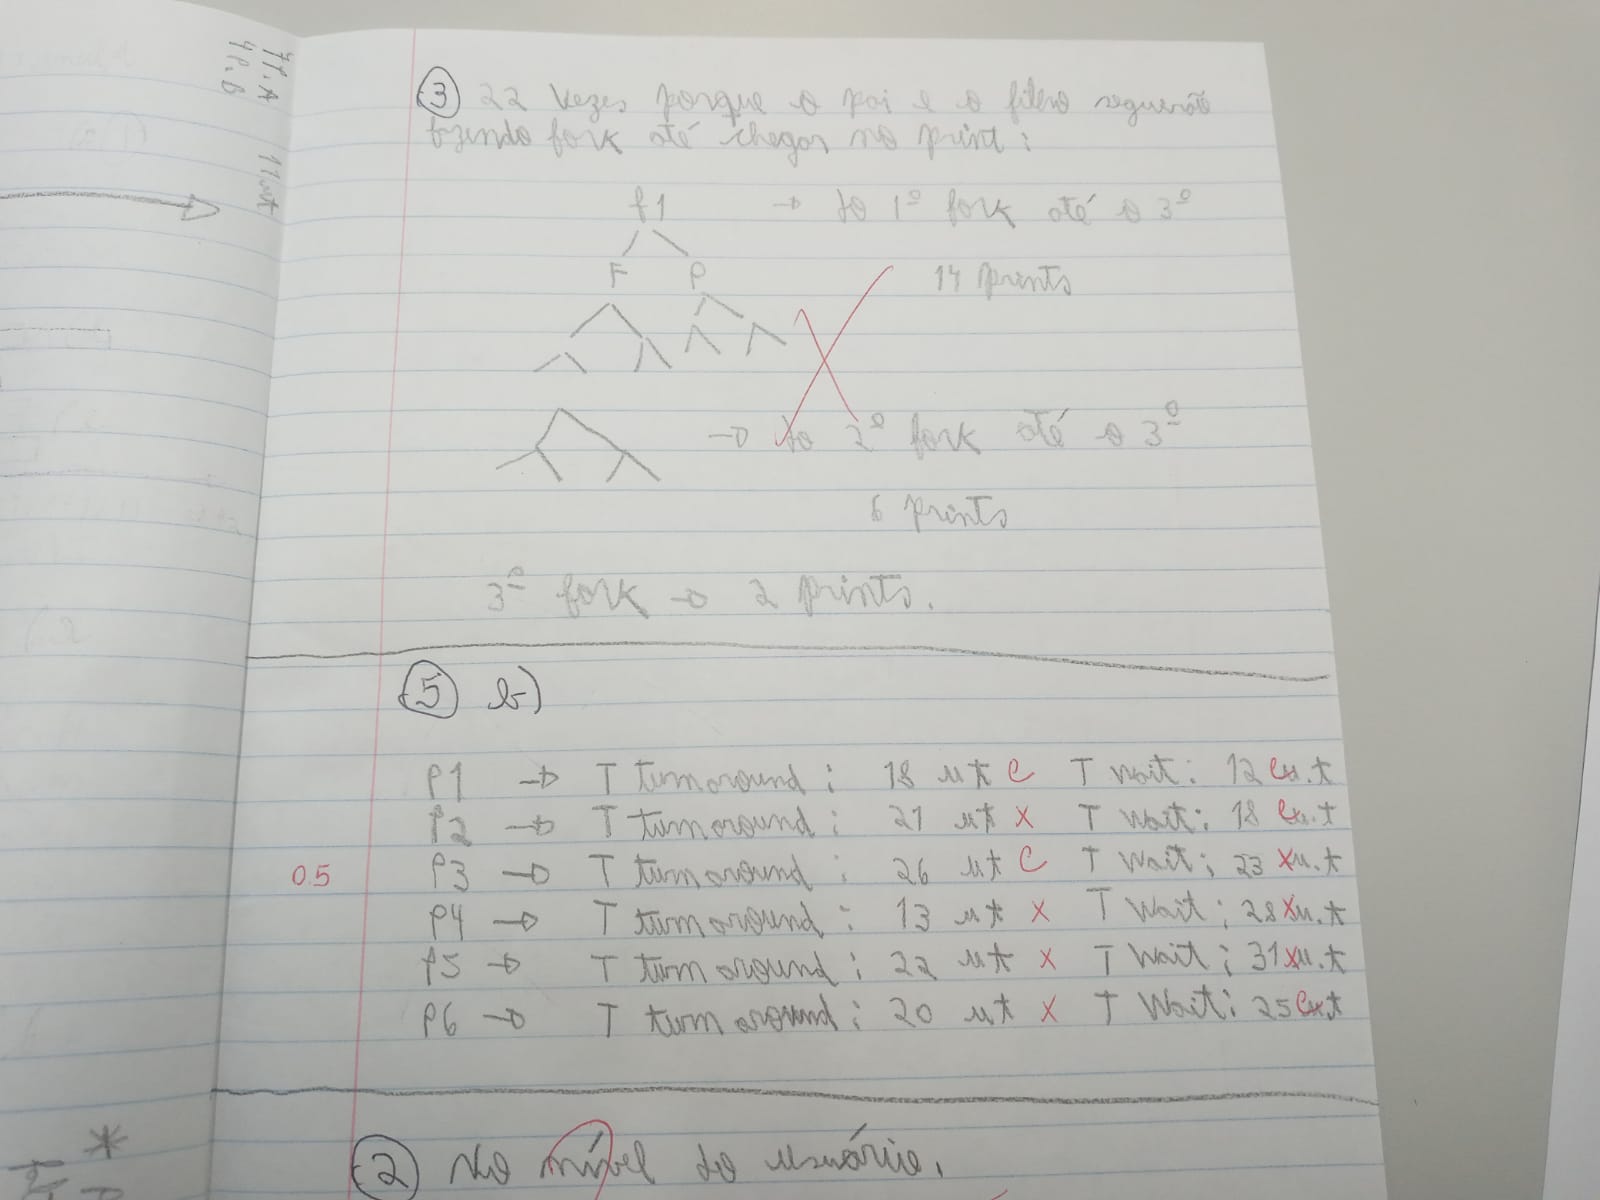 7P.A 11ut
4P.B
③ 22 vezes porque o pai e o filho seguirão
fzendo fork até chegar no print:
f1 → do 1º fork até o 3º
F P
14 prints
→ do 2º fork até o 3º
6 prints
3º fork → 2 prints.
⑤ b)
P1 → T turnaround: 18 ut C T wait: 12 C u.t
P2 → T turnaround: 21 ut X T wait: 18 C u.t
0.5 P3 → T turnaround: 26 ut C T wait: 23 X u.t
P4 → T turnaround: 13 ut X T wait: 28 X u.t
P5 → T turnaround: 22 ut X T wait: 31 X u.t
P6 → T turnaround: 20 ut X T wait: 25 C u.t
② No nível do usuário,